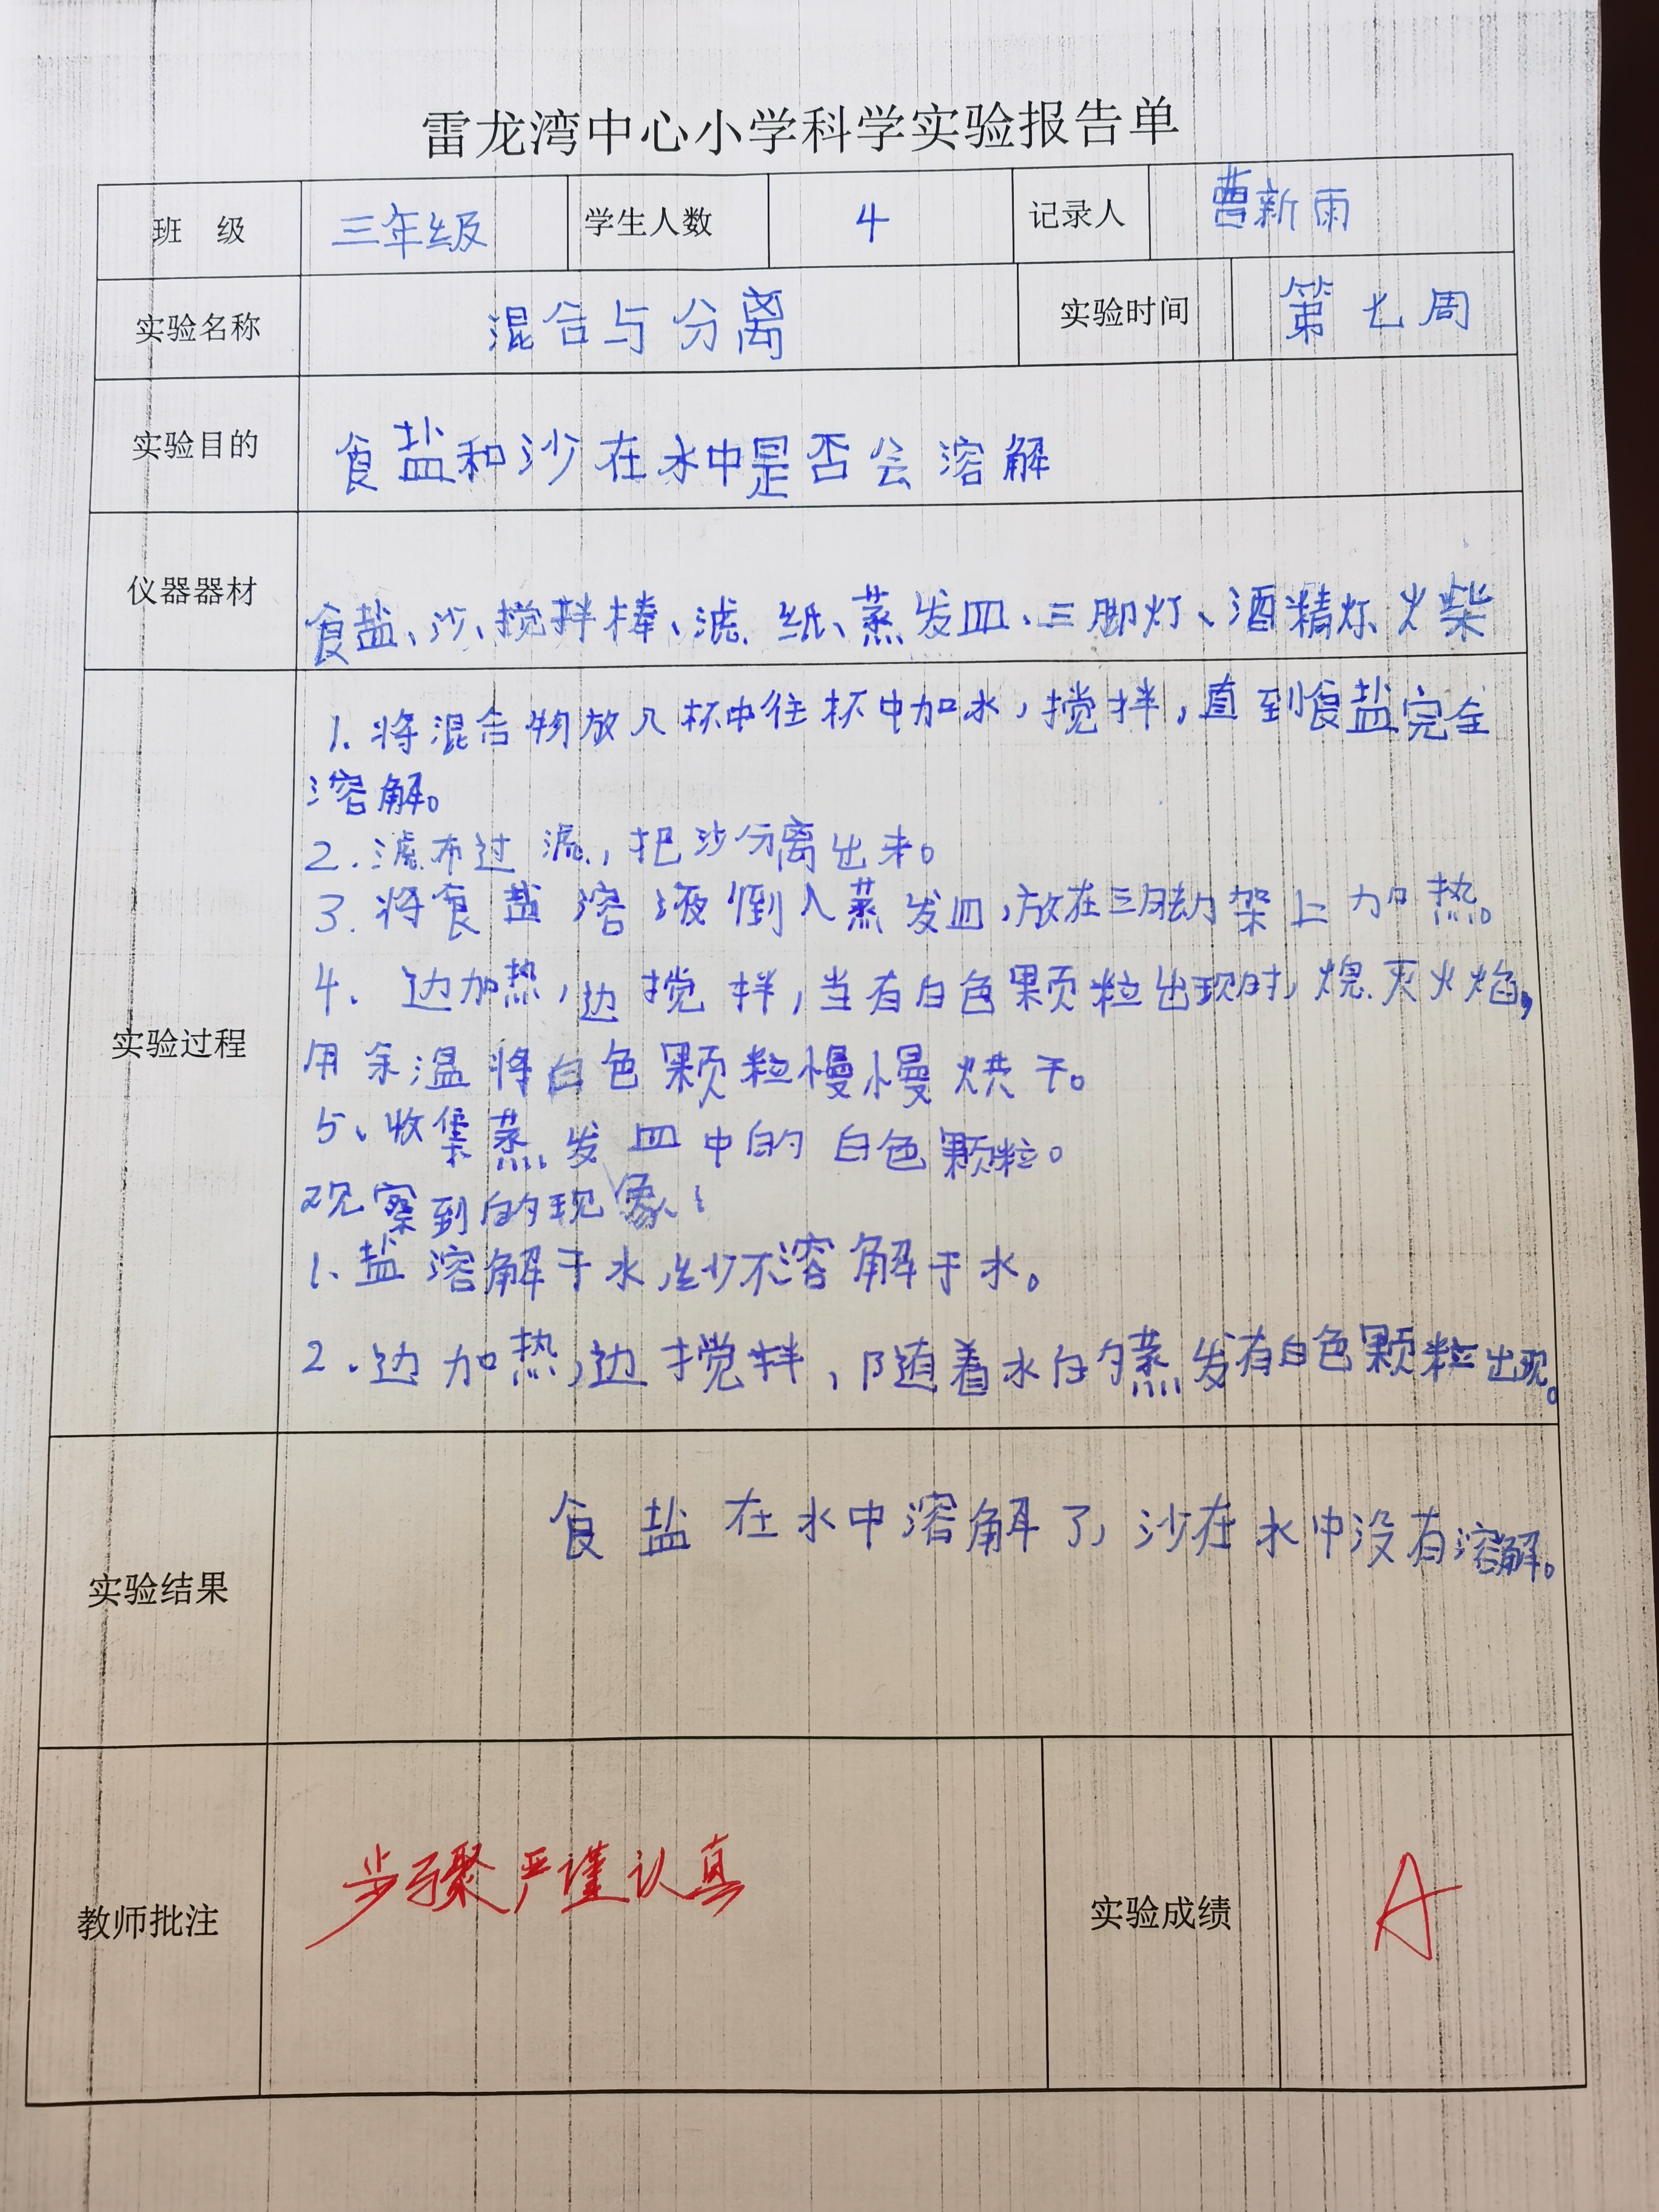 雷龙湾中心小学科学实验报告单
班 级 三年级 学生人数 4 记录人 曹新雨
实验名称 混合与分离 实验时间 第七周
实验目的 食盐和沙在水中是否会溶解
仪器器材 食盐、沙、搅拌棒、滤纸、蒸发皿、三脚灯、酒精灯、火柴
实验过程
1.将混合物放入杯中往杯中加水,搅拌,直到食盐完全
溶解。
2.滤布过滤,把沙分离出来。
3.将食盐溶液倒入蒸发皿,放在三脚架上加热。
4、边加热,边搅拌,当有白色颗粒出现时,熄灭火焰,
用余温将白色颗粒慢慢烘干。
5、收集蒸发皿中的白色颗粒。
观察到的现象:
1、盐溶解于水,沙不溶解于水。
2.边加热,边搅拌,随着水的蒸发有白色颗粒出现。
实验结果 食盐在水中溶解了,沙在水中没有溶解。
教师批注 步骤严谨认真 实验成绩 A